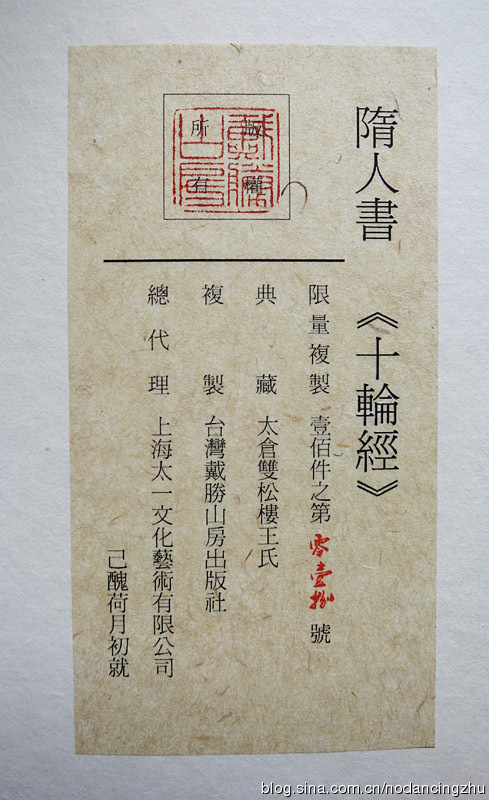 隋人書 《十輪經》
版權所有
戴勝山房
限量複製 壹佰件之第 零壹捌 號
典藏 太倉雙松樓王氏
複製 台灣戴勝山房出版社
總代理 上海太一文化藝術有限公司
己醜荷月初就
blog.sina.com.cn/nodancingzhu